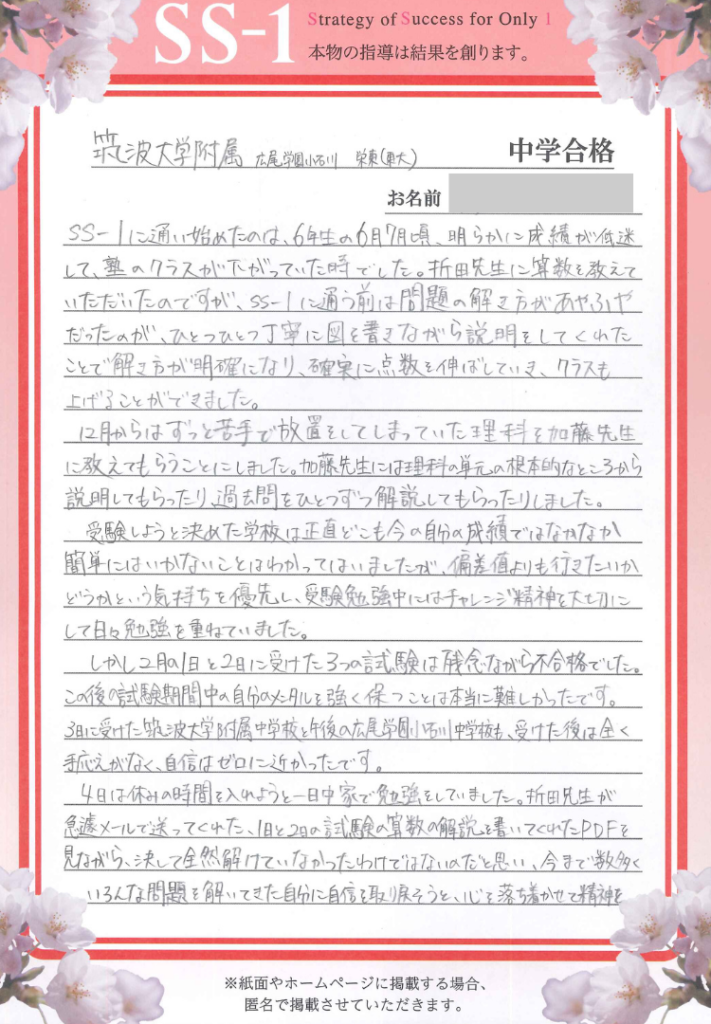 SS-1
Strategy of Success for Only 1
本物の指導は結果を創ります。
筑波大学附属 広尾学園小石川 栄東(東大) 中学合格
お名前
SS-1に通い始めたのは、6年生の6月7月頃、明らかに成績が低迷
して、塾のクラスが下がっていた時でした。折田先生に算数を教えて
いただいたのですが、SS-1に通う前は問題の解き方があやふや
だったのが、ひとつひとつ丁寧に図を書きながら説明をしてくれた
ことで解き方が明確になり、確実に点数を伸ばしていき、クラスも
上げることができました。
12月からはずっと苦手で放置をしてしまっていた理科を加藤先生
に教えてもらうことにしました。加藤先生には理科の単元の根本的なところから
説明してもらったり、過去問をひとつずつ解説してもらったりしました。
受験しようと決めた学校は正直どこも今の自分の成績ではなかなか
簡単にはいかないことはわかってはいましたが、偏差値よりも行きたいか
どうかという気持ちを優先し、受験勉強中にはチャレンジ精神を大切に
して日々勉強を重ねていました。
しかし2月の1日と2日に受けた3つの試験は残念ながら不合格でした。
この後の試験期間中の自分のメンタルを強く保つことは本当に難しかったです。
3日に受けた筑波大学附属中学校と午後の広尾学園小石川中学校も、受けた後は全く
手応えがなく、自信はゼロに近かったです。
4日は休みの時間を入れようと一日中家で勉強をしていました。折田先生が
急遽メールで送ってくれた、1日と2日の試験の算数の解説を書いてくれたPDFを
見ながら、決して全然解けていなかったわけではないのだと思い、今まで数多く
いろんな問題を解いてきた自分に自信を取り戻そうと、心を落ち着かせて精神を
※紙面やホームページに掲載する場合、
匿名で掲載させていただきます。